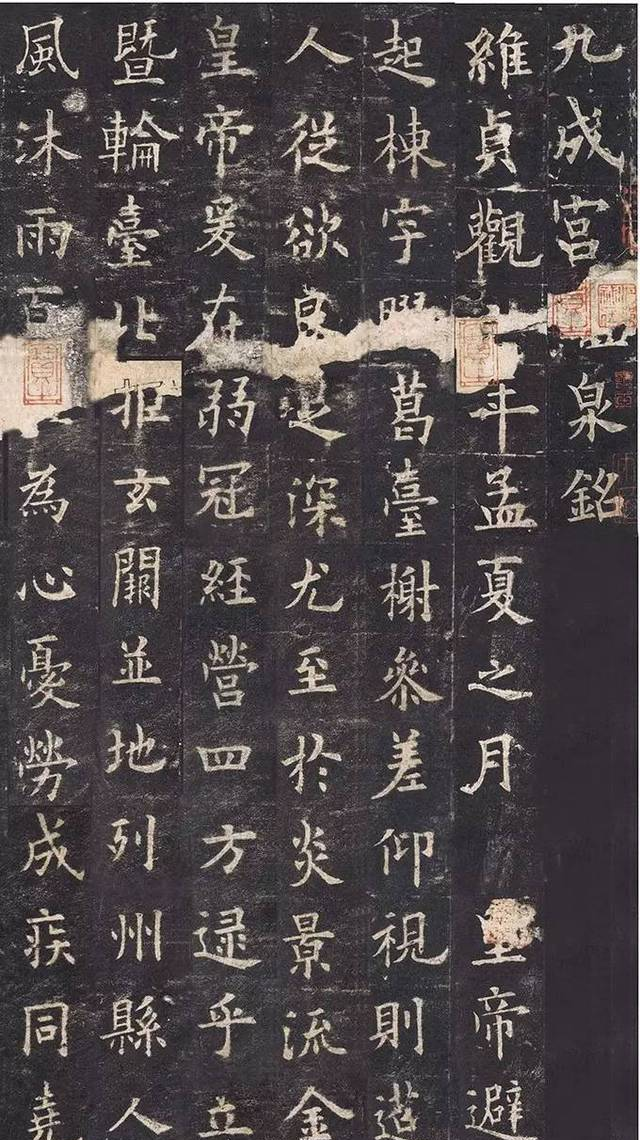 九成宮泉銘
維貞觀年孟夏之月皇帝避
起棟宇葛臺榭參差仰視則迢
人從欲良足深尤至於炎景流金
皇帝爰在弱冠經營四方逮乎立
暨輪臺北拒玄闕並地列州縣人
風沐雨百為心憂勞成疾同堯